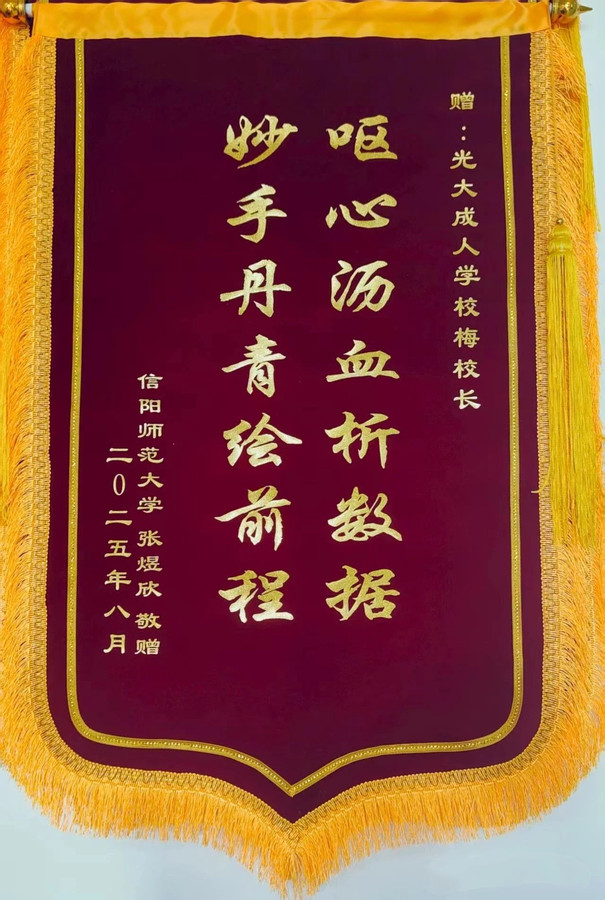 赠：光大成人学校梅校长
呕心沥血析数据
妙手丹青绘前程
信阳师范大学 张煜欣 敬赠
二0二五年八月